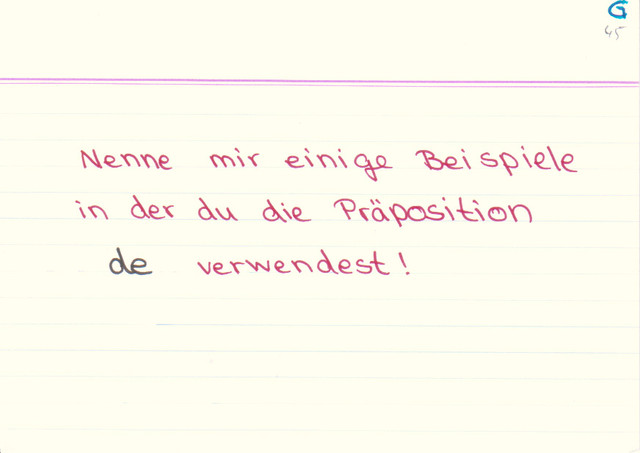 G
45
Nenne mir einige Beispiele
in der du die Präposition
de verwendest!